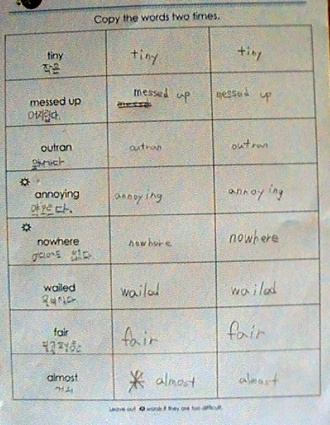 Copy the words two times.
tiny tiny tiny
작은
messed up messed up messed up
어지럽다
outran outran outran
annoying annoying annoying
nowhere nowhere nowhere
어디에도 없다
wailed wailed wailed
fair fair fair
almost almost almost
거의
Leave out words if they are too difficult.